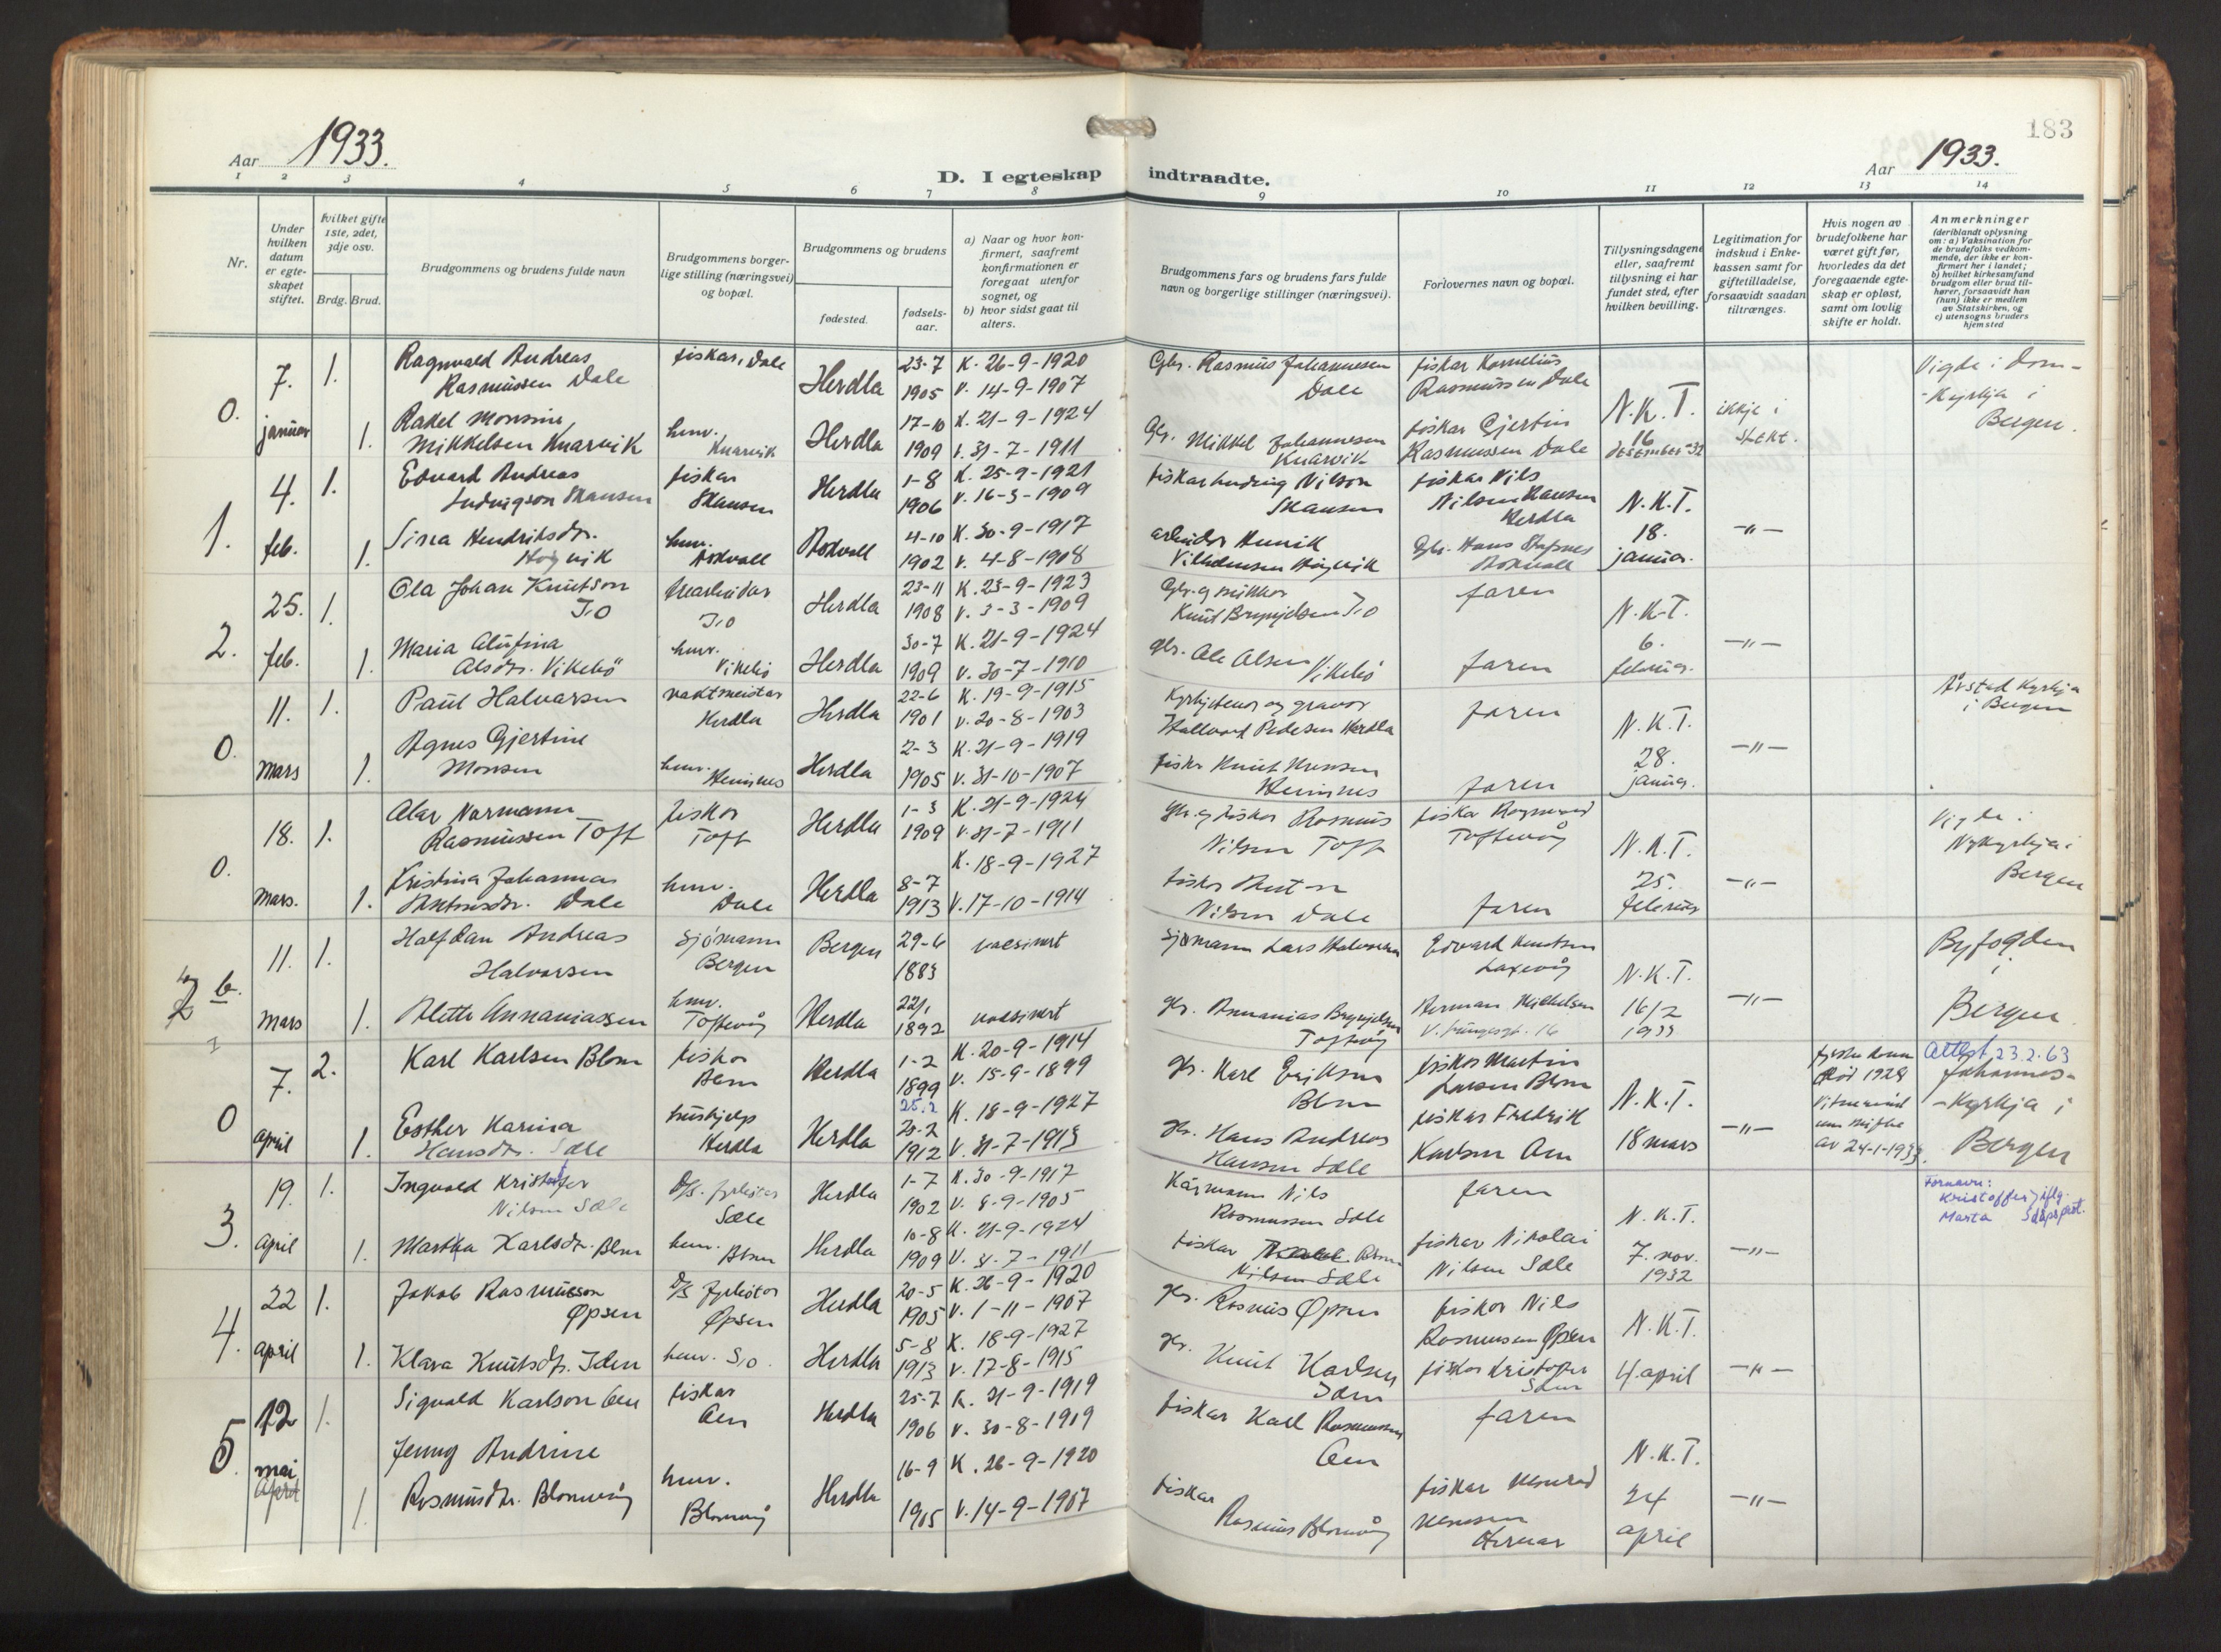 183
Aar 1933.
D. I egteskap indtraadte.
Aar 1933.
1 2 3 4 5 6 7 8 9 10 11 12 13 14
Nr.
Under
hvilken
datum
er egte-
skapet
stiftet.
hvilket gifte
1ste, 2det,
3dje osv.
Brdg. Brud.
Brudgommens og brudens fulde navn
Brudgommens borger-
lige stilling (næringsvei)
og bopæl.
Brudgommens og brudens
fødested.
fødsels-
aar.
a) Naar og hvor kon-
firmert, saafremt
konfirmationen er
foregaat utenfor
sognet, og
b) hvor sidst gaat til
alters.
Brudgommens fars og brudens fars fulde
navn og borgerlige stillinger (næringsvei).
Forlovernes navn og bopæl.
Tillysningsdagene
eller, saafremt
tillysning ei har
fundet sted, efter
hvilken bevilling.
Legitimation for
indskud i Enke-
kassen samt for
giftetilladelse,
forsaavidt saadan
tiltrænges.
Hvis nogen av
brudefolkene har
været gift før,
hvorledes da det
foregaaende egte-
skap er opløst,
samt om lovlig
skifte er holdt.
Anmerkninger
(deriblandt oplysning
om: a) Vaksination for
de brudefolks vedkom-
mende, der ikke er kon-
firmert her i landet;
b) hvilket kirkesamfund
brudgom eller brud til-
hører, forsaavidt han
(hun) ikke er medlem
av Statskirken, og
c) utensogns bruders
hjemsted
0. 7. januar
1. Ragnvald Andreas
Rasmussen Dale
fiskar, Dale
Herdla
23-7
1905
K. 26-9-1920
V. 14-9-1907
Gbr. Rasmus Johannesen
Dale
fiskar Kornelius
Rasmussen Dale
N.K.T.
16
desember 32
ikkje i
stekt.
Vigde i Dom-
-kyrkja i
Bergen.
1. Rakel Monsine
Mikkelsen Knarvik
hmv.
Knarvik
Herdla
17-10
1909
K. 21-9-1924
V. 31-7-1911
Gbr. Mikkel Johannesen
Knarvik
fiskar Gjertin
Rasmussen Dale
1. 4. feb.
1. Edvard Andreas
Ludvigson Skansen
fiskar
Skansen
Herdla
1-8
1906
K. 25-9-1921
V. 16-3-1909
fiskar Ludvig Nilson
Skansen
fiskar Nils
Nilsen Skansen
Herdla
N.K.T.
18.
januar.
-"-
1. Sina Hendriksdtr.
Høyvik
hmv.
Askvoll
Askvoll
4-10
1902
K. 30-9-1917
V. 4-8-1908
arbeider Henrik
Vilhelmsen Høyvik
Gbr. Hans Stafsnes
Askvoll
2. 25. feb.
1. Ola Johan Knutson
Io
Io
Herdla
23-11
1908
K. 23-9-1923
V. 3-3-1909
Gbr. og
Knut Brynjelsen Io
faren
N.K.T.
6.
februar.
-"-
1. Maria Alufina
Olsdtr. Vikebø
hmv.
Vikebø
Herdla
30-7
1909
K. 21-9-1924
V. 30-7-1910
Gbr. Ole Olsen
Vikebø
faren
0. 11. mars
1. Paul Halvorsen
vaktmeister
Herdla
Herdla
22-6
1901
K. 19-9-1915
V. 20-8-1903
Kyrkjetenar og gravar
Hallvard Pedersen Herdla
faren
N.K.T.
28.
januar.
-"-
Årstad Kyrkja
i Bergen
1. Agnes Gjertine
Monsen
hmv.
Hennes
Herdla
2-3
1905
K. 21-9-1919
V. 31-10-1907
faren
0. 18. mars.
1. Olav Normann
Rasmussen Toft
fiskar
Toft
Herdla
1-3
1909
K. 21-9-1924
V. 31-7-1911
Gbr. og fiskar Rasmus
Nilsen Toft
fiskar Ragnvald
Toftevåg
N.K.T.
25.
februar
-"-
Vigde i
Nykyrkja i
Bergen
1. Kristina Johannes
Antonsdtr. Dale
hmv.
Dale
Herdla
8-7
1913
K. 18-9-1927
V. 17-10-1914
fiskar Anton
Nilsen Dale
faren
b. 11. mars
1. Halfdan Andreas
Halvorsen
Sjømann
Bergen
Bergen
29-6
1883
vaksinert
Sjømann Lars Halvorsen
Edvard Knutsen
Laxevåg
N.K.T.
16/2
1933
-"-
Byfogden
i
Bergen
1. Alette Annaniassen
hmv.
Toftevåg
Herdla
22/1
1892
vaksinert
Gbr. Annanias Brynjelsen
Toftevåg
Herman Mickelsen
0 7. april
2. Karl Karlsen Blom
fiskar
Blom
Herdla
1-2
1899
K. 20-9-1914
V. 15-9-1899
Gbr. Karl Eriksen
Blom
fiskar Martin
Larsen Blom
N.K.T.
18 mars
-"-
fyrste kona
død 1928
Vitnemål
um skifte
av 24-1-1933.
Attest 23.2.63
Johannes-
-Kyrkja i
Bergen
1. Esther Karina
Hansdtr. Sæle
hushjelp
Herdla
Herdla
25.2
25-2
1912
K. 18-9-1927
V. 31-7-1913
Gbr. Hans Andreas
Hansen Sæle
fiskar Fredrik
Karlsen Oen
3. 19. april
1. Ingvald Kristoffer
Nilsen Sæle
D/S. fyrbøtar
Sæle
Herdla
1-7
1902
K. 30-9-1917
V. 8-9-1905
Kårmann Nils
Rasmussen Sæle
faren
N.K.T.
7. nov.
1932
-"-
Fornavn:
Kristoffer, iflg.
Marta dåpsprot.
1. Martha Karlsdtr. Blom
hmv.
Blom
Herdla
10-8
1909
K. 21-9-1924
V. 31-7-1911
fiskar
Nilsen Sæle
fiskar Nikolai
Nilsen Sæle
4. 22 april
1. Jakob Rasmusson
Øpsen
D/S fyrbøtar
Øpsen
Herdla
20-5
1905
K. 26-9-1920
V. 1-11-1907
Gbr. Rasmus Øpsen
fiskar Nils
Rasmussen Øpsen
N.K.T.
4. april
-"-
1. Klara Knutsdtr. Iden
hmv.
Herdla
5-8
1913
K. 18-9-1927
V. 17-8-1915
Gbr. Knut Karlsen
Iden
fiskar Kristoffer
5. 12 mai
April
1. Sigvald Karlson Oen
fiskar
Oen
Herdla
25-7
1906
K. 21-9-1919
V. 30-8-1909
fiskar Karl Rasmussen
Oen
faren
N.K.T.
24
april
-"-
1. Jenny Andrine
Rasmusdtr. Blomvåg
hmv.
Blomvåg
Herdla
16-9
1905
K. 26-9-1920
V. 14-9-1907
fiskar
Rasmus Blomvåg
fiskar Konrad
Hernar